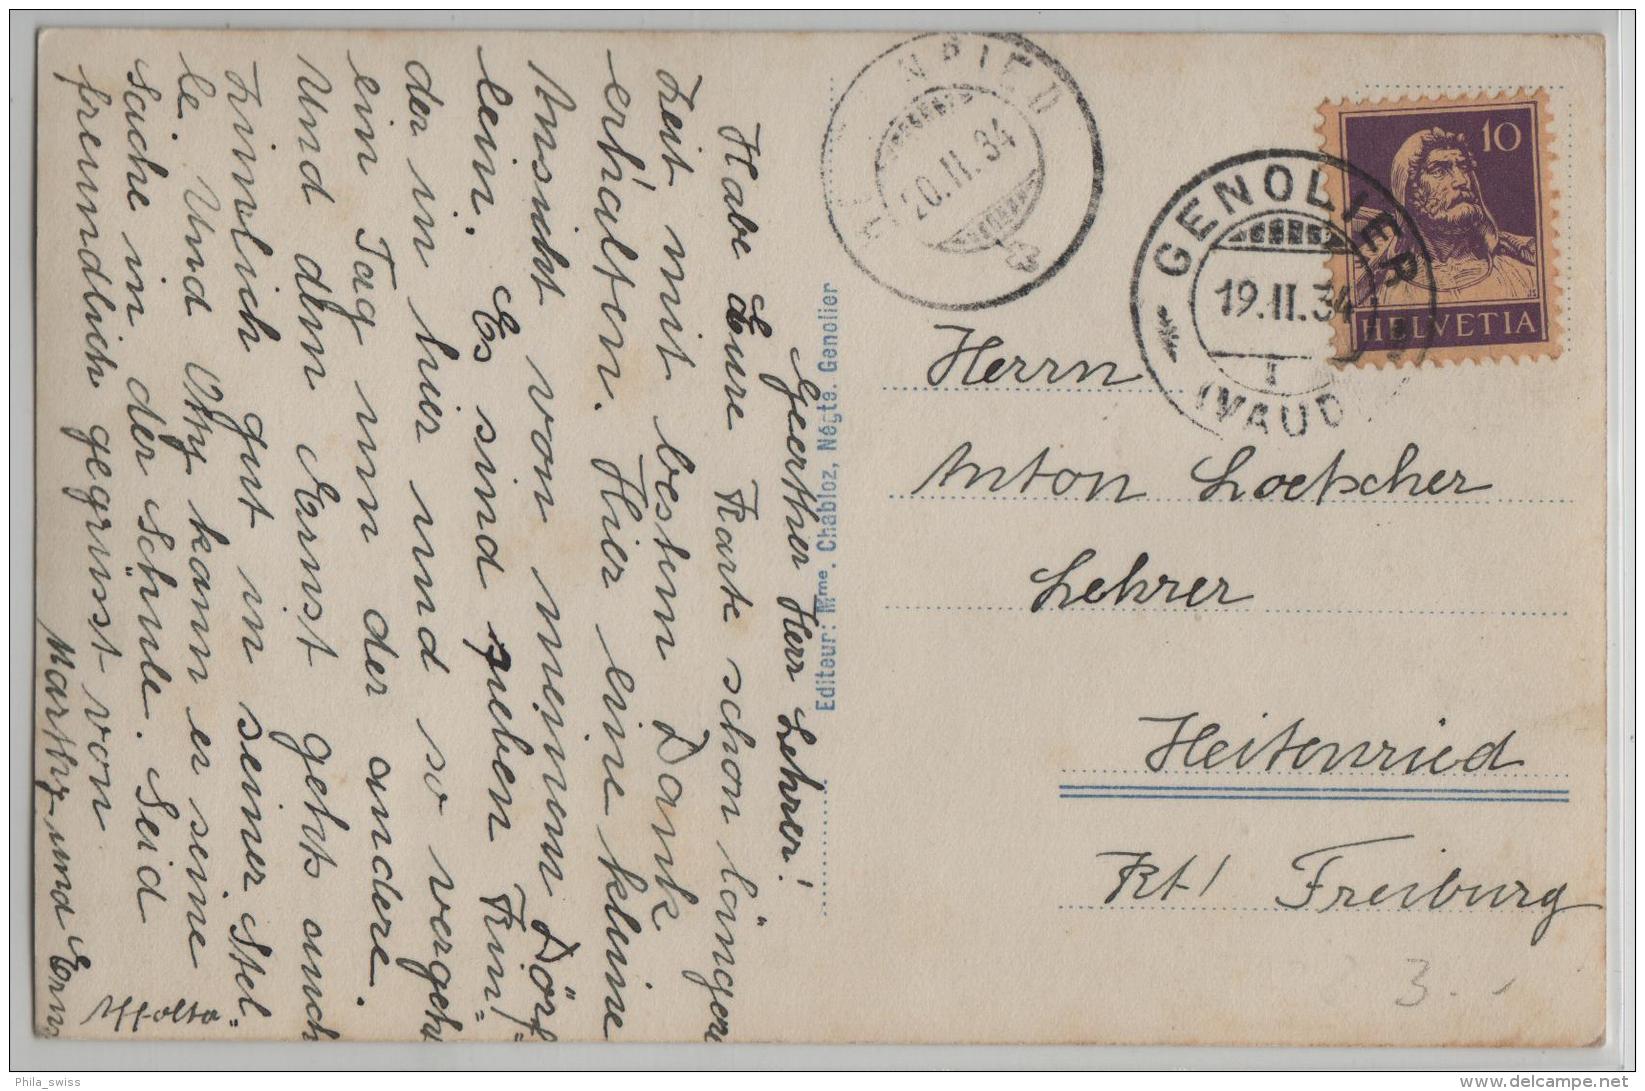 Geerther Herr Lehrer!
Habe Eure Karte schon längere
Zeit mit bestem Dank
erhalten. Hier eine kleine
Ansicht von meinem Dörf=
lein. Es sind sieben Kin=
der in hier und so vergeht
ein Tag um der andere.
Und dem Earnst gehts auch
zimlich gut in seiner Stel=
le. Und Otty kann er seine
Sache in der Schule. Seid
freundlich gegrüsst von
Marthy und Erns
Editeur: Mme. Chabloz, Négte. Genolier
NRIED
20.II.34
GENOLIER
19.II.34
(VAUD)
10
HELVETIA
Herrn
Anton Loetscher
Lehrer
Heitenried
Kt! Freiburg
3.-
Phila_swiss
www.delcampe.net